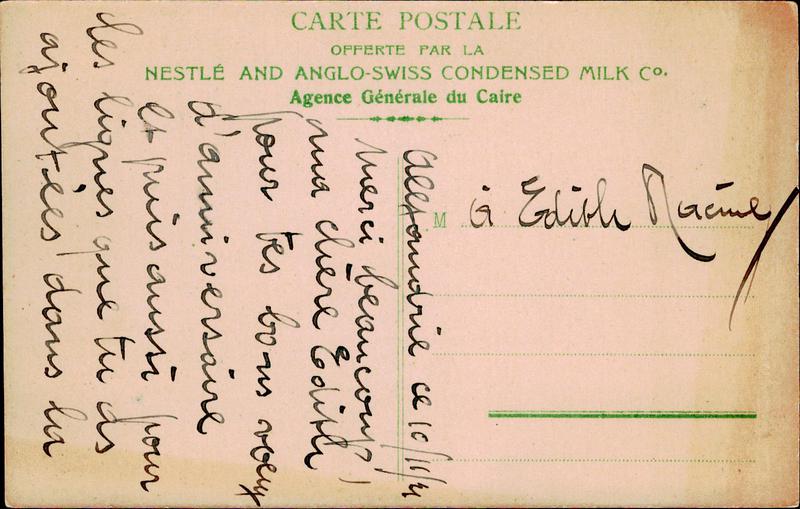 CARTE POSTALE
OFFERTE PAR LA
NESTLÉ AND ANGLO-SWISS CONDENSED MILK Co.
Agence Générale du Caire
M à Edith Racine
Alexandrie ce 10/11/
Merci beaucoup
ma chère Edith
pour tes bons vœux
d'anniversaire
et puis aussi pour
les lignes que tu as
ajoutées dans la